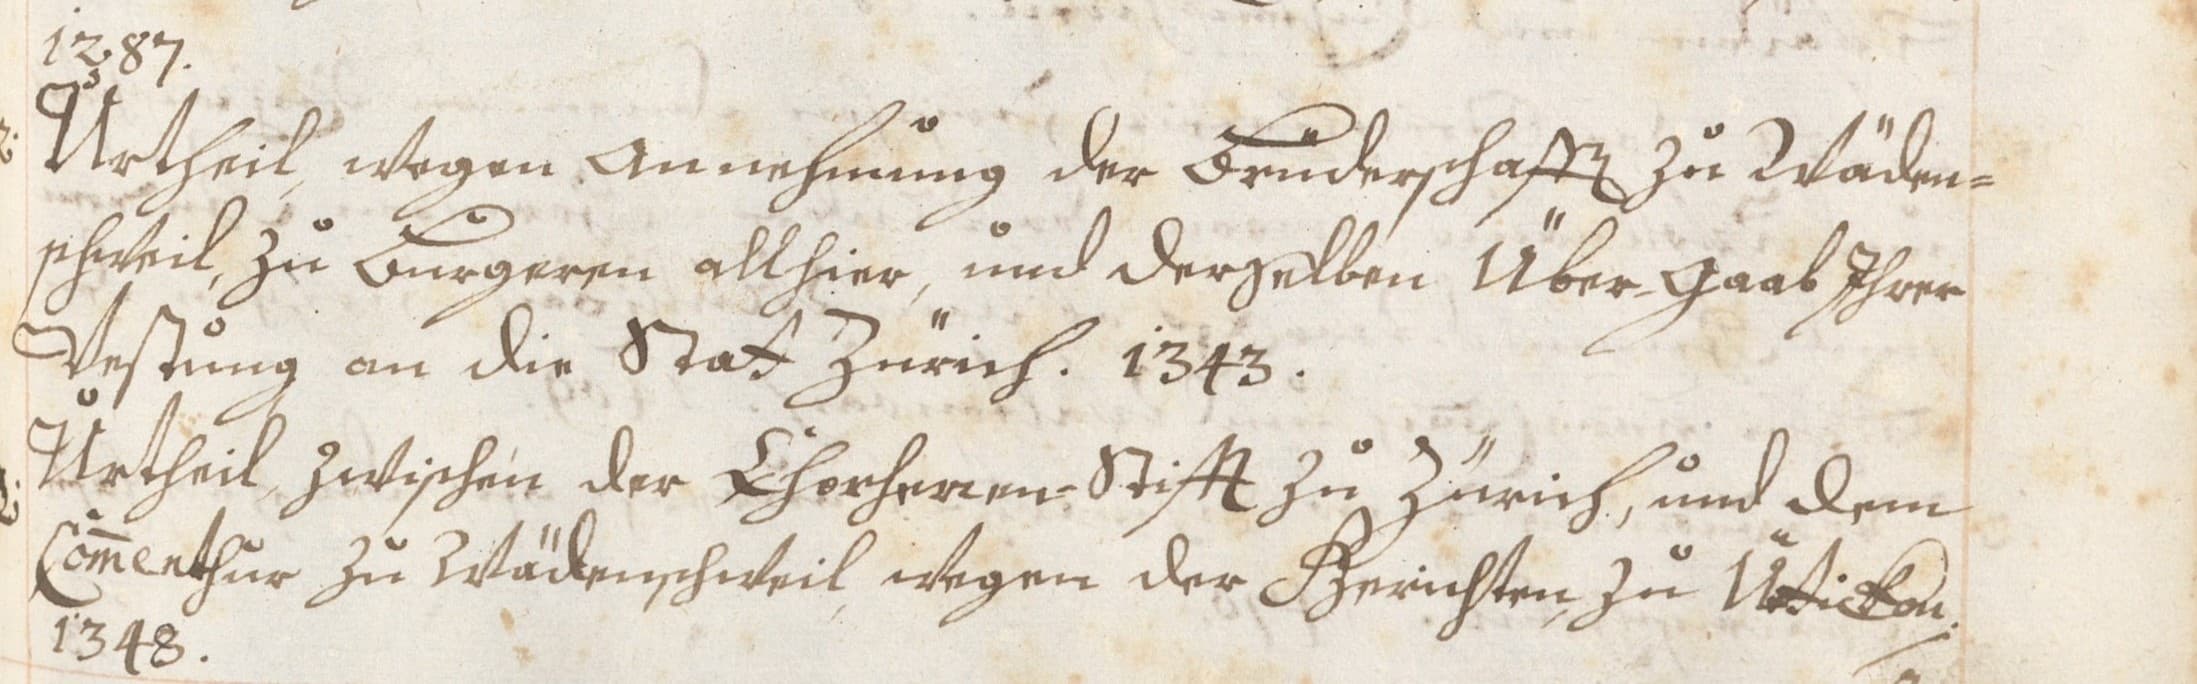 1287.
Urtheil, wegen Annehmung der Bruderschafft zu Wäden=
schweil, zu Burgeren allhier, und derselben Über-Gaab Ihrer
Vestung an die Statt Zürich. 1343.
Urtheil, zwischen der Chorherren-Stifft zu Zürich, und dem
Com̄enthur zu Wädenschweil, wegen der Gerichten, zu Ütickon.
1348.